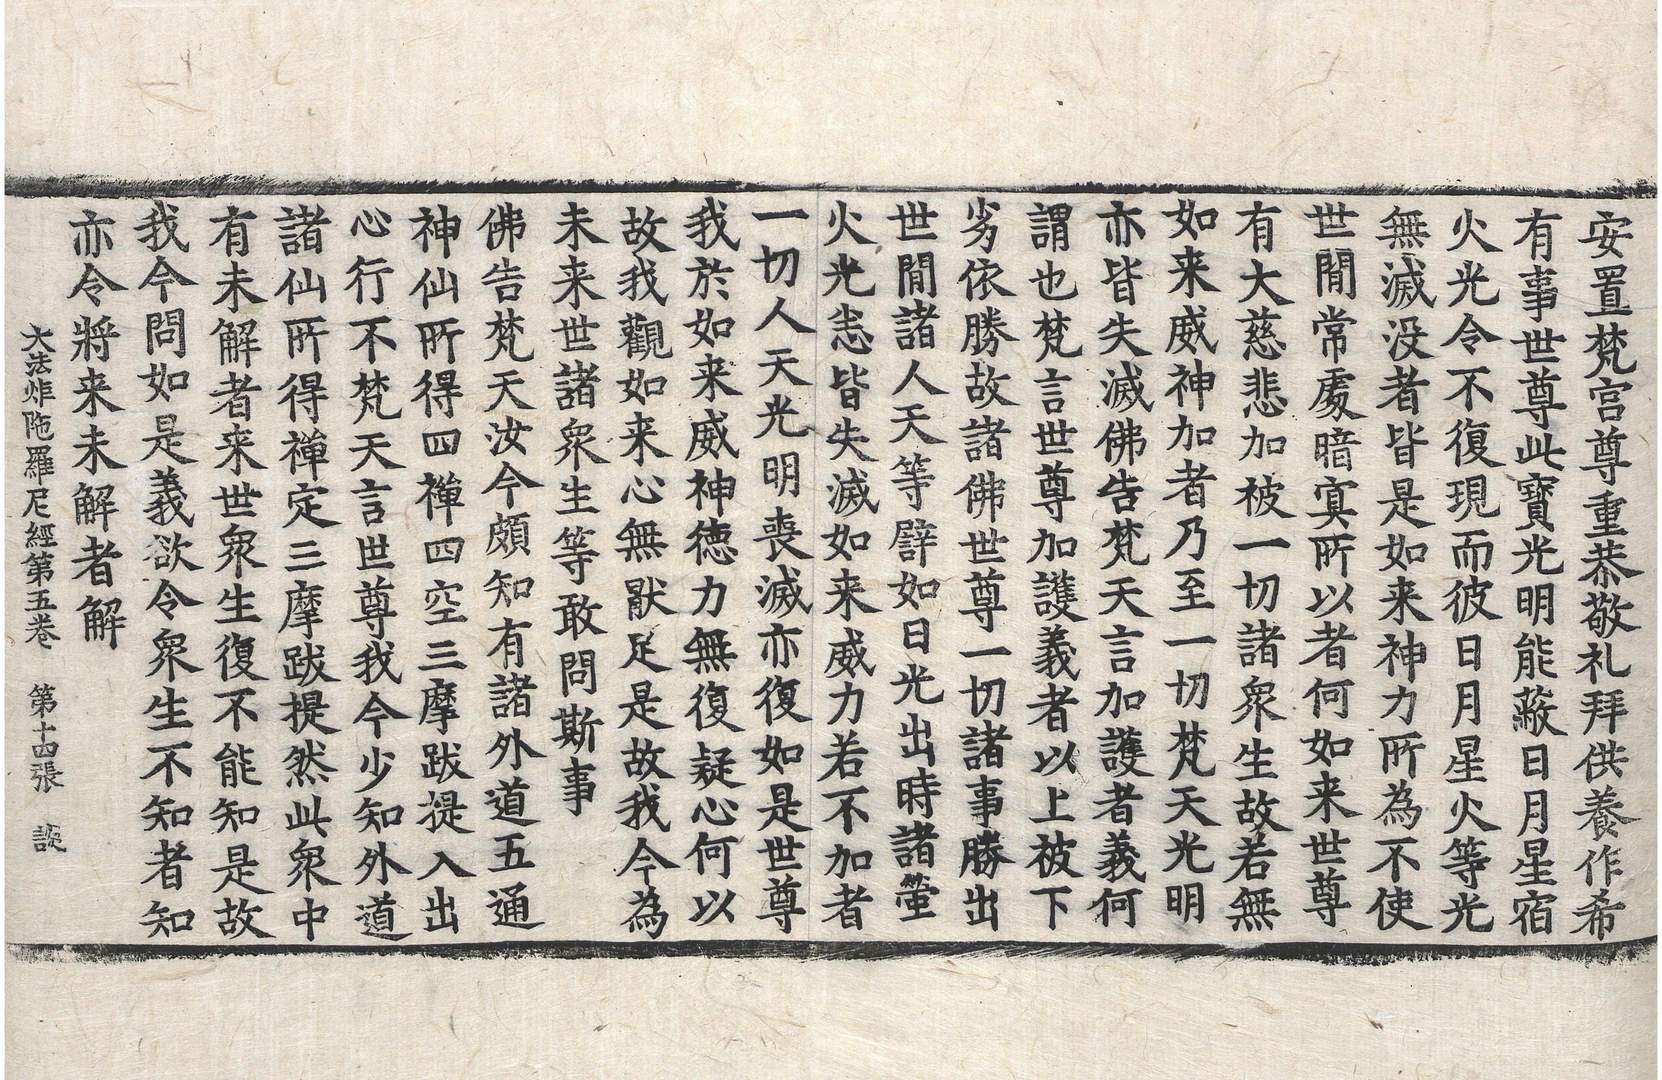 安置梵宮尊重恭敬礼拜供養作希
有事世尊此寶光明能蔽日月星宿
火光令不復現而彼日月星火等光
無滅没者皆是如来神力所為不使
世閒常處暗冥所以者何如来世尊
有大慈悲加被一切諸衆生故若無
如来威神加者乃至一切梵天光明
亦皆失滅佛告梵天言加護者義何
謂也梵言世尊加護義者以上被下
劣依勝故諸佛世尊一切諸事勝出
世閒諸人天等譬如日光出時諸螢
火光悉皆失滅如来威力若不加者
一切人天光明喪滅亦復如是世尊
我於如来威神德力無復疑心何以
故我觀如来心無猒足是故我今為
未来世諸衆生等敢問斯事
佛告梵天汝今頗知有諸外道五通
神仙所得四禪四空三摩跋提入出
心行不梵天言世尊我今少知外道
諸仙所得禪定三摩跋提然此衆中
有未解者来世衆生復不能知是故
我今問如是義欲令衆生不知者知
亦令將来未解者解
大法炬陁羅尼經第五卷　第十四張　談